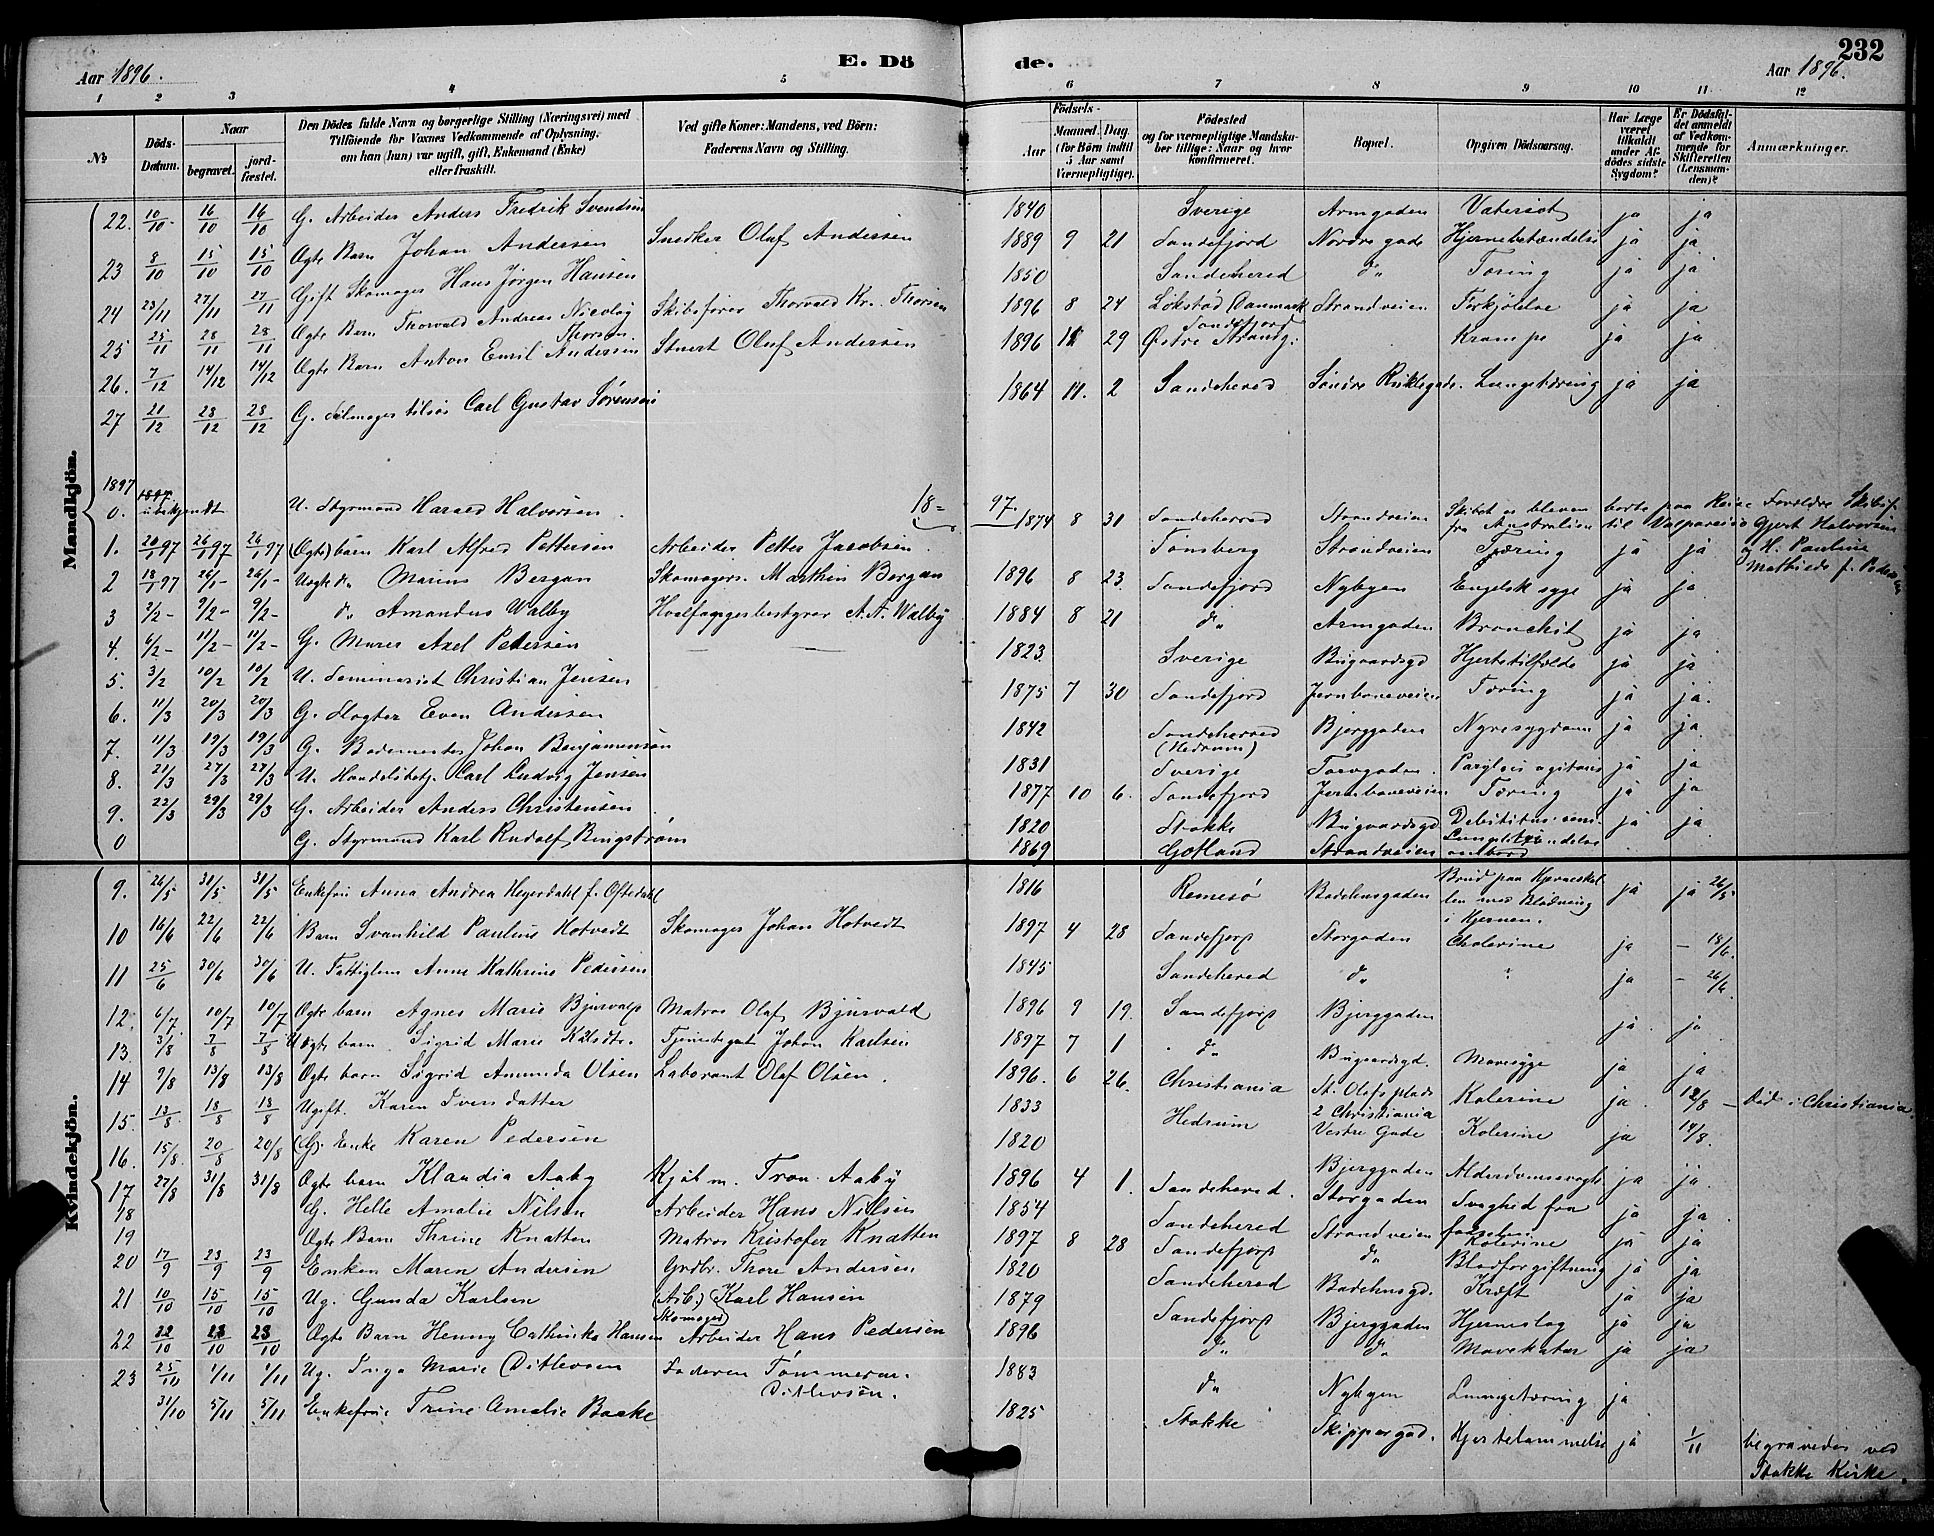 Aar 1896.
E. Dö
de.
Aar 1896.
232
1 2 3 4 5 6 7 8 9 10 11 12
No
Döds-Datum.
Naar
begravet. jord-fæstet.
Den Dödes fulde Navn og borgerlige Stilling (Næringsvei) med
Tilföiende for Voxnes Vedkommende af Oplysning,
om han (hun) var ugift, gift, Enkemand (Enke)
eller fraskilt.
Ved gifte Koner: Mandens, ved Börn:
Faderens Navn og Stilling.
Födsels-
Aar
Maaned. Dag.
(for Börn indtil
5 Aar samt
Værnepligtige).
Födested
og for værnepligtige Mandska-
ber tillige: Naar og hvor
konfirmeret.
Bopæl.
Opgiven Dödsaarsag.
Har Læge
været
tilkaldt
under Af-
dödes sidste
Sygdom?
Er Dödsfal-
det anmeldt
af Vedkom-
mende for
Skifteretten
(Lensman-
den)?
Anmærkninger.
Mandkjön.
22. 10/10 16/10 16/10 G. Arbeider Anders Fredrik Svendsen 1840 Sverige Armgaden Vatersot ja ja
23 8/10 15/10 15/10 Ægte Barn Johan Andersen Snedker Olaf Andersen 1889 9 21 Sandefjord Nordre gade Hjernebetændelse ja ja
24 23/11 27/11 27/11 Gift Skomager Hans Jørgen Hansen 1850 Sandeherred do Tæring ja ja
25 25/11 28/11 28/11 Ægte Barn Thorvald Andreas Nicolay Thorsen Skibsfører Thorvald Kr. Thorsen 1896 8 24 Løkstad Danmark Strandveien Forkjølelse ja ja
26. 7/12 14/12 14/12 Ægte Barn Anton Emil Andersen Stuert Oluf Andersen 1896 11 29 Sandefjord Østre Strandg: Krampe ja ja
27 21/12 28/12 28/12 G. Salmager tilsøs Carl Gustav Sørensen 1864 11. 2 Sandeherred Søndre Lungetæring ja ja
1897
18 = 97.
0. 1897 ubekjendt U. Styrmand Harald Halvorsen 1874 8 31 Sandeherred Strandveien Skibet er bleven borte paa Reise fra Australien til Valparaiso Forældre Skibsf. Gjert Halvorsen og H. Pauline Mathilde f. Pedersen
1. 20/1 97 26/1 97 26/1 97 (Ægte) barn Karl Alfred Pettersen Arbeider Petter Jacobsen Tønsberg Strandveien Tæring ja ja
2 18/1 97 26/1 - 26/1 - Uægte do Marius Bergan Skomagers. Marthin Bergan 1896 8 23. Sandefjord Nybyen Engelsk syge ja ja
3 2/2 - 9/2 - 9/2 - do Amandus Walby Hvalfangerbestyrer A. A. Walby 1884 8 21 do Armgaden Bronchit ja ja
4. 6/2 - 11/2 - 11/2 - G. Murer Axel Petersen 1823 Sverige Bugaardsgd Hjertetilfælde ja ja
5. 3/2 10/2 10/2 U. Seminarist Christian Jensen 1875 7 30 Sandefjord Jernbaneveien Tæring ja ja.
6. 11/3 20/3 20/3 G. Slagter Even Andersen 1842 Sandeherred (Hedrum) Bjerggaden Nyresygdom ja ja
7. 11/3 19/3 19/3 G. Bademester Johan Benjaminsen 1831 Sverige Torvgaden. agitans ja ja
8. 21/3 27/3 27/3 U. Handelsbetj. Carl Ludvig Jensen 1877 10 6. Sandefjord Jernbaneveien Tæring ja ja
9. 22/3 29/3 29/3 G. Arbeider Anders Christensen 1820 Stokke Bugaardsgd Debilitas ja ja
0 G. Styrmand Karl Rudolf Bengstrøm 1869 Gotland Strandveien ombord
Kvindekjön.
9. 26/5 31/5 31/5 Enkefru Anna Andrea Heyerdahl f. Oftedahl 1816 Remesø Badehusgaden Brud paa Hjerneskallen med Blødning i Hjernen. ja ja 26/5
10 16/6 22/6 22/6 Barn Svanhild Pauline Hotvedt Skomager Johan Hotvedt 1897 4 28 Sandefjord Storgaden Cholerine ja - 18/6.
11 25/6 30/6 30/6 U. Fattiglem Anne Kathrine Pedersen 1845 Sandeherred do " ja - 26/6.
12. 6/7 10/7 10/7 Ægte barn Agnes Marie Bjusvald Matros Olaf Bjusvald 1896 9 19. Sandefjord Bjerggaden ja ja
13. 3/8 7/8 7/8 Uægte barn Sigrid Marie Johan Karlsen 1897 7 1 do Bugaardsgd. Mavesyge ja ja
14 9/8 13/8 13/8 Ægte barn Sigrid Amunda Olsen Laborant Olaf Olsen. 1896. 6 26. Christiania St. Olafs plads 2 Christiania Kolerine ja 12/8 - Død i Christiania
15. 13/8 18/8 18/8 Ugift. Karen Iversdatter 1833 Hedrum Vestre Gade Kolerine ja 14/8.
16. 15/8. 20/8 20/8 (G). Enke Karen Pedersen 1820 Bjerggaden ja ja.
17 27/8 31/8 31/8 Ægte barn Klaudia Aaby Kjøbm. Tron. Aaby 1896 4 1. Sandeherred. Storgaden Svaghed fra fødselen ja ja
18 G. Helle Amalie Nilsen Arbeider Hans Nilsen 1854 Sandeherred Strandveien Kolerine ja ja
19 Ægte Barn Thrine Knatten Matros Kristofer Knatten 1897 8 28 Sandefjord do Blodforgiftning ja ja
20 17/9 23/9 23/9 Enken Maren Andersen Grdbr. Thore Andersen 1820 Sandeherred Badehusgd. Kræft ja ja
21 10/10 15/10 15/10 Ug. Gunda Karlsen (Arb.) Skomager Karl Hansen 1879 Sandefjord Bjerggaden Hjerneslag ja ja
22 22/10 28/10 28/10 Ægte Barn Henny Cathinka Hansen Arbeider Hans Pedersen 1896 do do Mavekatar ja ja
23 25/10 1/11 1/11 Ug. Inga Marie Ditlevsen Faderen Tømmerm. Ditlevsen. 1883 do Nybyen Lungetæring ja
31/10 5/11 5/11 Enkefrue Trine Amalie Baake 1825 Stokke Skippergad. Hjertelammelse ja 1/11 begravedes ved Stokke Kirke.